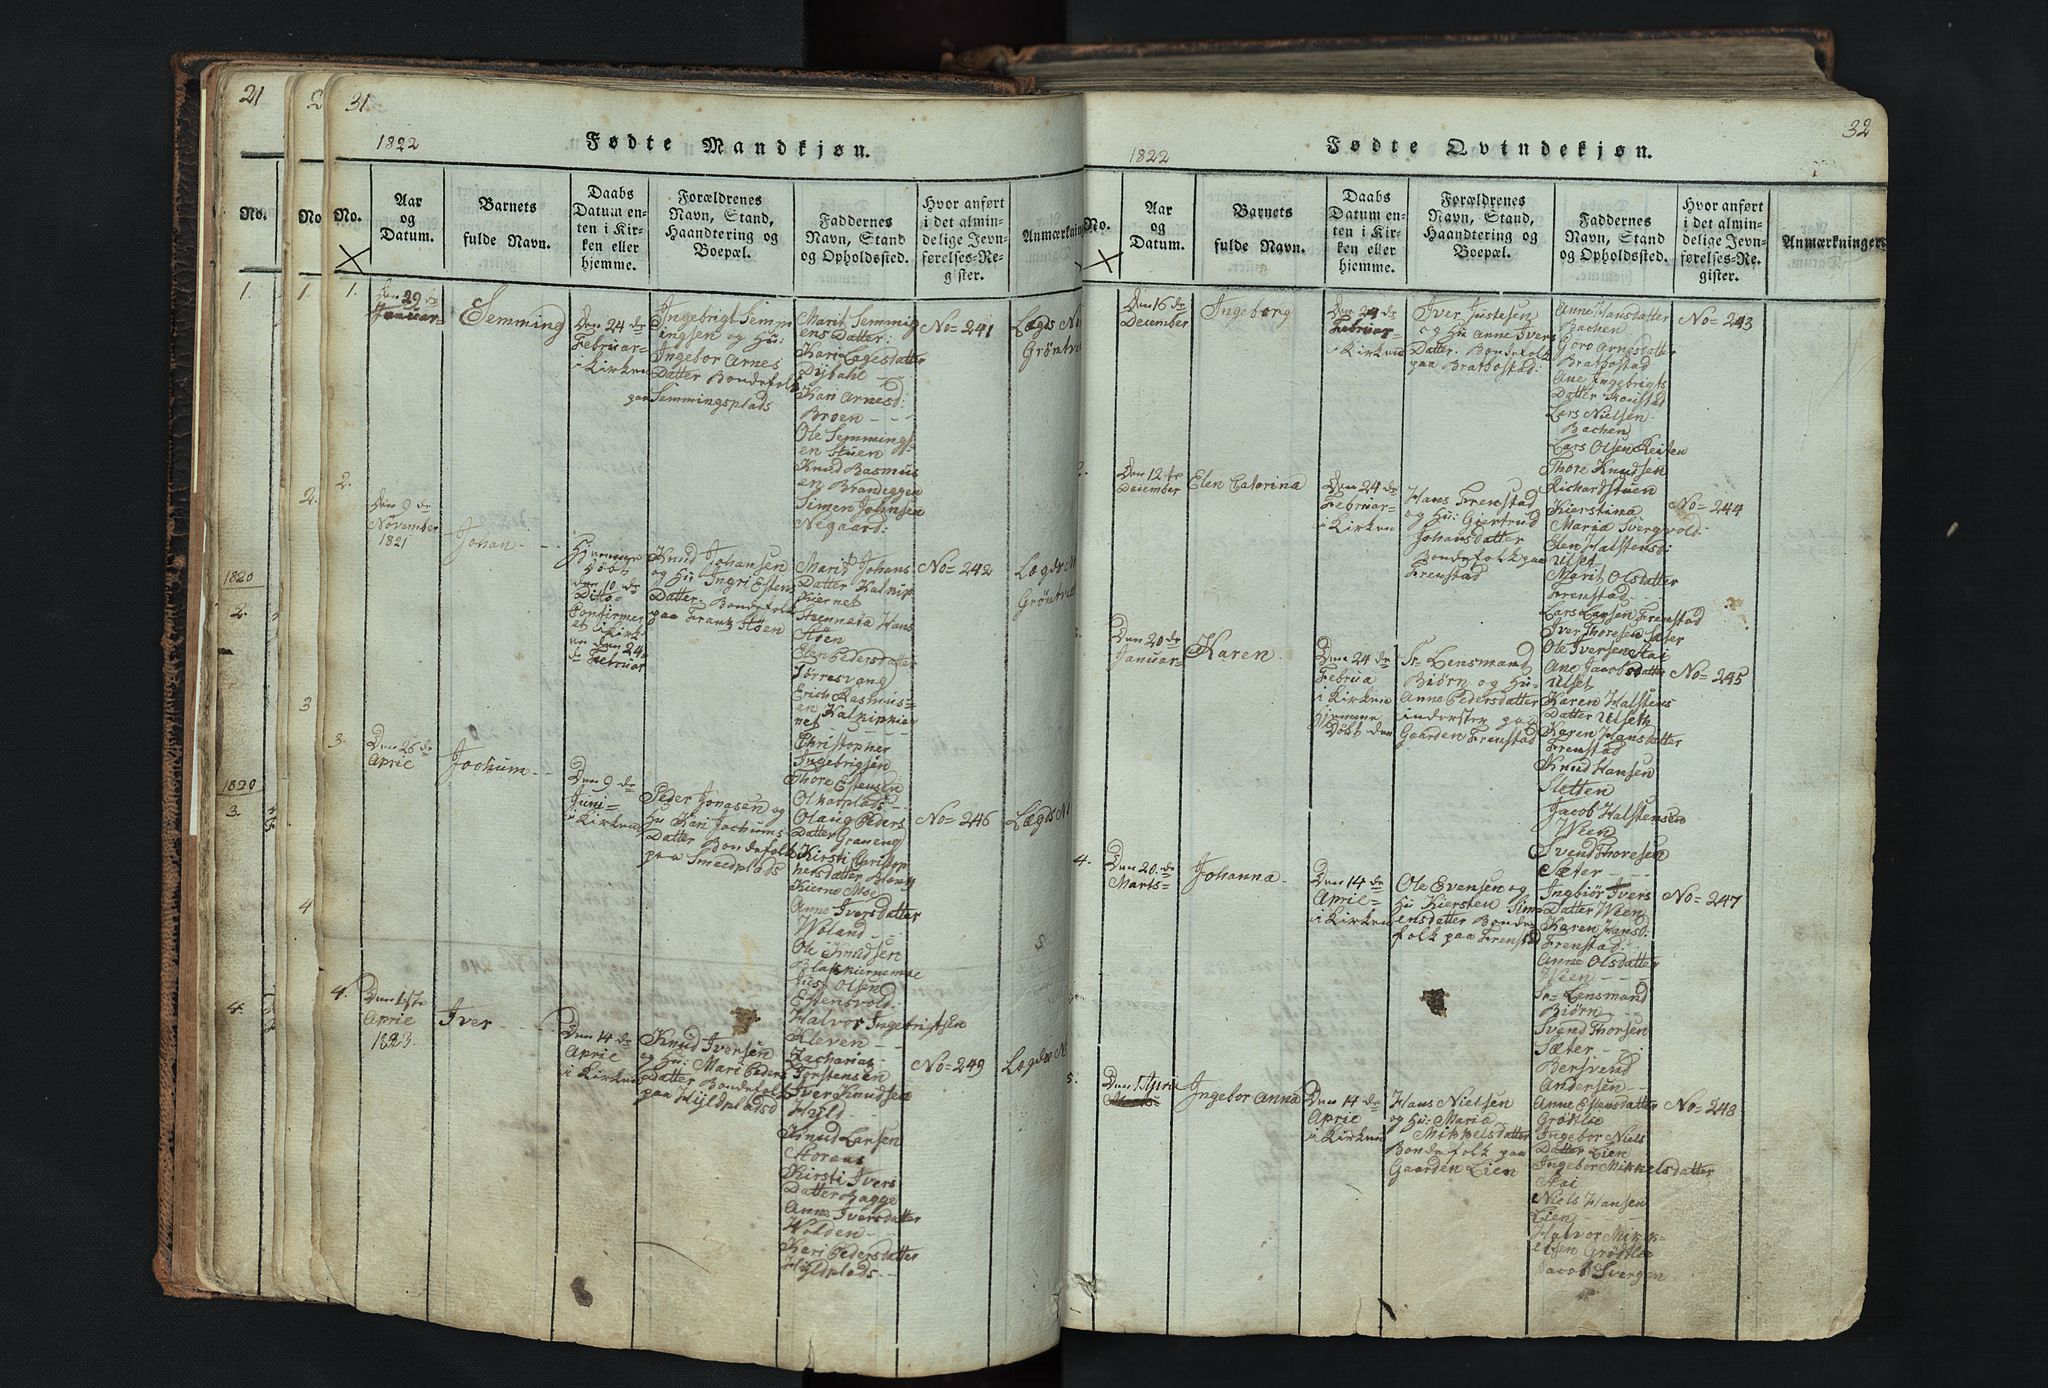 21
31
1822
Fødte Mandkjøn.
No.
Aar
og
Datum.
Barnets
fulde Navn.
Daabs
Datum en-
ten i Kir-
ken eller
hjemme.
Forældrenes
Navn, Stand,
Haandtering og
Boepæl.
Faddernes
Navn, Stand
og Opholdssted.
Hvor anført
i det almin-
delige Jevn-
førelses-Re-
gister.
Anmærkning
1.
Den 29 de
Januar-
Semming
Den 24 de
Februar-
i Kirken
Ingebrigt Semm
ingsen og Hu:
Ingebor Arnes
Datter Bondefolk
paa Semmingsplads
Marit Semmig
ens Datter:
Kari Lagesdatter
Dijbahl
Kari Arnesd:
Broen
Ole Semmings-
en Stuen
Knud Rasmus
en Brandeggen
Simen Johnsen
Negaard:
No=241
Lægds No
2.
Den 9 de
November
1821
Johan
Hjemme
Døbt
den 10 de
Ditto-
Confirmer
et i Kirk
en den 24
de Februar
Knud Johansen
og Hu Ingri Estens
Datter. Bondefolk
paa Frantz Støen
Marit Johans
Datter Kalkip
Kiernet
Støen
Elen Pedersdatter
Tørresvang
Erich Rasmus=
en Kalkipkier
net
Christopher
Ingebrigsen
No=242
3.
Den 26 de
April
Jochum
Den 9 de
Juni-
i Kirken
Peder Jonasen og
Hu Kari Jochums
Datter Bondefolk
paa Smedplads
Thore Estensen
Olkarplads
Olaug Peders
Datter Graneng
Kirsti Christop
hersdatter
Anne Iversdatter
Woland
Ole Knudsen
Just Olsen
Estensvold
No=246
4.
Den 1ste
April
1823
Iver
Den 14 de
April
i Kirken
Knud Iversen
og Hu: Mari Peders
datter Bondefolk
paa Hyldplads
Halvor Ingebrigtsen
Kleven
Zacharias
Torstensen
Iver Knudsen
Hyld
Knud Larsen
Storaas
Kirsti Ivers
Datter Bagge
Anne Iversdatter
Wolden
Kari Pedersdatter
Hyldplads
No=249
32
1822
Fødte Qvindekjøn.
No.
Aar
og
Datum.
Barnets
fulde Navn.
Daabs
Datum en-
ten i Kir-
ken eller
hjemme.
Forældrenes
Navn, Stand,
Haandtering og
Boepæl.
Faddernes
Navn, Stand
og Opholdssted.
Hvor anført
i det almin-
delige Jevn-
førelses-Re-
gister.
Anmærkninger.
Den 16 de
December
Ingeborg
Den 24 de
Februar-
i Kirken
Iver Justesen
og Hu Anne Ivers
Datter: Bondefolk
paa Bratbostad:
Anne Hansdatter
Bachen
Goro Arnesdatter
Bratbostad
Ane Ingebrigts
Datter Koistad
Lars Nielsen
Bachen
Lars Olsen Reiten
Thore Knudsen
Richardstuen
No=243
2.
Den 12 te
December
Elen Catorina
Den 24 de
Februar-
i Kirken
Hans Frenstad
og Hu: Giertrud
Johansdatter
Bondefolk paa
Frenstad
Kierstina
Maria Svergvold
Elen Halstensd:
Ulset
Marit Olsdatter
Frenstad
Lars Larsen Frenstad
Iver Thoresen Sæter
Ole Iversen Stai
No=244
3.
Den 20 de
Januar-
Karen
Den 24 de
Februa
i Kirken
Hjemme
Døbt den
Sr Lensmand
Biørn og Hu-
Anne Pedersdatter
inderster paa
Gaarden Frenstad
Ane Jacobsdatter
Ulset
Karen Halstens
Datter Ulseth
Karen Hansdatter
Frenstad
Knud Hansen
Sletten
Jacob Halstensen
Wien
Svend Thoresen
Sæter
No=245
4.
Den 20 de
Marts-
Johanna
Den 14 de
April-
i Kirken
Ole Evensen og
Hu Kiersten Sim-
ensdatter Bonde
folk paa Frenstd
Ingbiør Ivers
Datter Ween
Karen Hansd:
Frenstad:
Anne Olsdatter
Ween
Sr Lensmand
Biørn
Svend Thorsen
Sæter
Bersvend
Andersen
No=247
5.
Den 1 April
Ingebor Anna
Den 14 de
April
i Kirken
Hans Nielsen
og Hu: Maria
Mikkelsdatter
Bondefolk paa
Gaarden Lien
Anne Estensdatter
Grødtløe
Ingebor Niels
Datter Lien
Ingebor Mikkelsdatter
Stai
Niels Hansen
Lien
Halvor Mikk-
elsen Grødtløe
Jacob Svergen
No=248